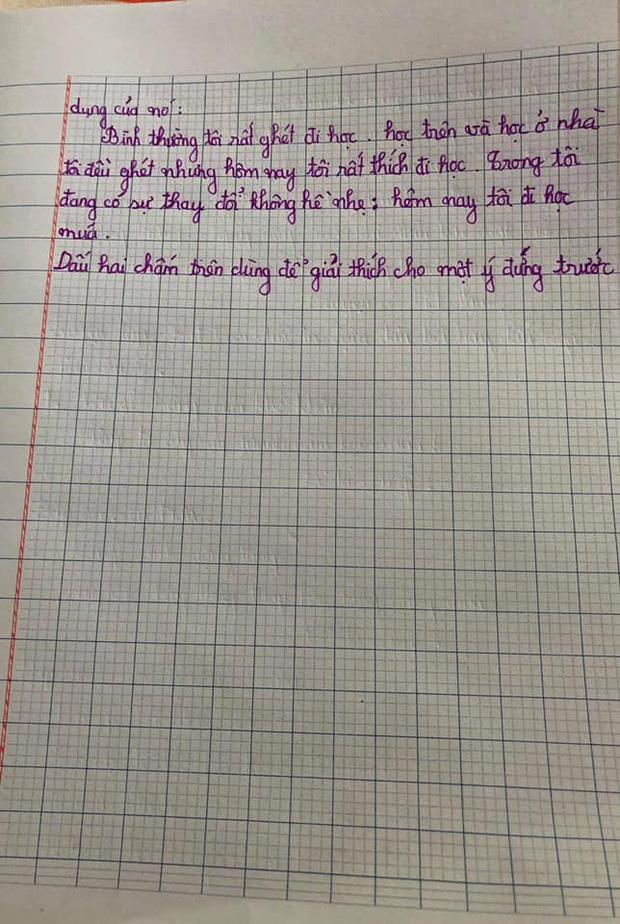 dụng của nó:
Bình thường tôi rất ghét đi học. học trên và học ở nhà
tôi đều ghét nhưng hôm nay tôi rất thích đi học. Trong tôi
đang có sự thay đổi không hề nhẹ: hôm nay tôi đi học
muà.
Dấu hai chấm trên dùng để giải thích cho một ý đứng trước